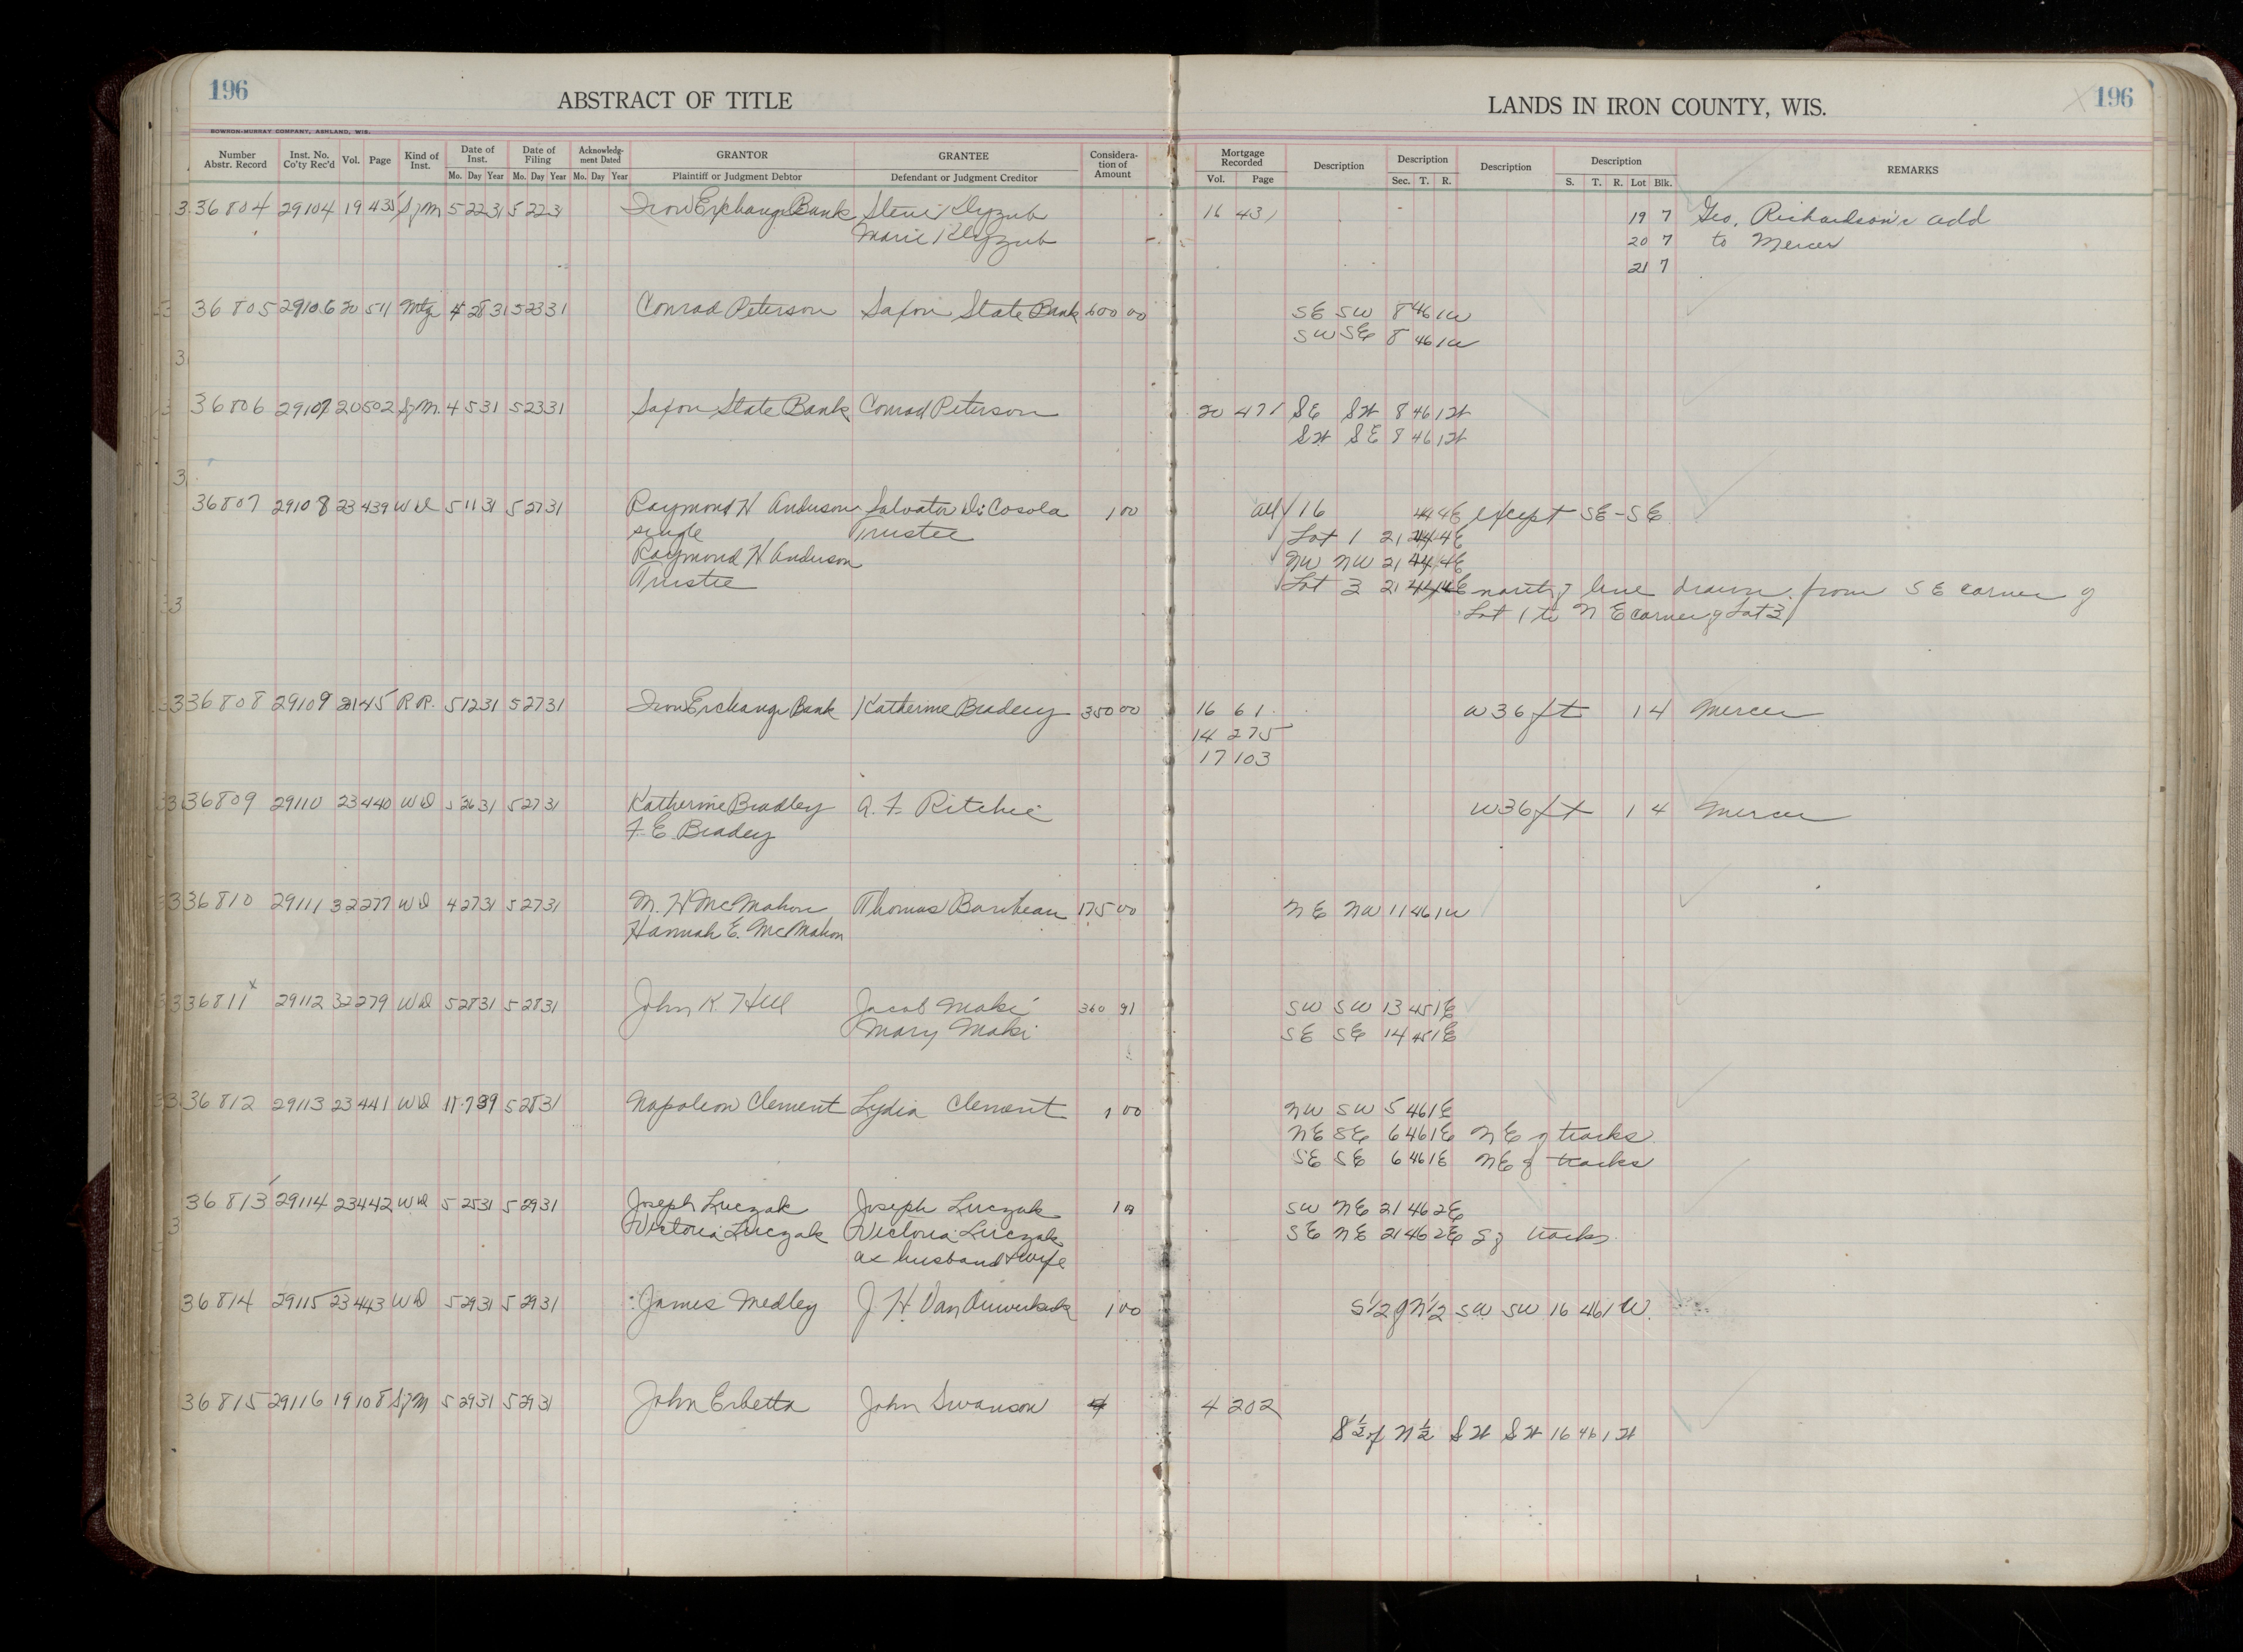 196
ABSTRACT OF TITLE
LANDS IN IRON COUNTY, WIS.
196
BOWRON-MURRAY COMPANY, ASHLAND, WIS.
Number Abstr. Record Inst. No. Co'ty Rec'd Vol. Page Kind of Inst. Date of Inst. Mo. Day Year Date of Filing Mo. Day Year Acknowledg-ment Dated Mo. Day Year GRANTOR Plaintiff or Judgment Debtor GRANTEE Defendant or Judgment Creditor Considera-tion of Amount Mortgage Recorded Vol. Page Description Description Sec. T. R. Description Description S. T. R. Lot Blk. REMARKS
36804 29104 19 435 S of M 5 22 31 5 22 31 Iron Exchange Bank Steve Klyzub 16 431 19 7 Geo. Richardson's add
Marie Klyzub 20 7 to Mercer
21 7
36805 29106 20 511 Mtg 4 28 31 5 23 31 Conrad Peterson Saxon State Bank 600 00 SE SW 8 46 1W
SW SE 8 46 1W
36806 29107 20 502 S of M. 4 5 31 5 23 31 Saxon State Bank Conrad Peterson 20 471 SE SW 8 46 1W
SW SE 8 46 1W
36807 29108 23 439 WD 5 11 31 5 27 31 Raymond H Anderson Salvator DiCosola 1 00 all 16 44 4E except SE-SE
single Trustee Lot 1 21 44 4E
Raymond H Anderson NW NW 21 44 4E
Trustee Lot 3 21 44 4E north of line drawn from SE corner of
Lot 1 to NE corner of Lot 3
36808 29109 21 45 RR. 5 12 31 5 27 31 Iron Exchange Bank Katherine Bradley 350 00 16 61 W 36 ft 1 4 Mercer
14 275
17 103
36809 29110 23 440 WD 5 26 31 5 27 31 Katherine Bradley A. F. Ritchie W 36 ft 1 4 Mercer
F. E Bradley
36810 29111 32 277 WD 4 27 31 5 27 31 M. H McMahon Thomas Baribeau 175 00 NE NW 11 46 1W
Hannah E. McMahon
36811 x 29112 32 279 WD 5 28 31 5 28 31 John K. Hill Jacob Maki 360 91 SW SW 13 45 1E
Mary Maki SE SE 14 45 1E
36812 29113 23 441 WD 11 7 39 5 28 31 Napoleon Clement Lydia Clement 1 00 NW SW 5 46 1E
NE SE 6 46 1E NE of tracks
SE SE 6 46 1E NE of tracks
36813 29114 23 442 WD 5 25 31 5 29 31 Joseph Luczak Joseph Luczak 1 00 SW NE 21 46 2E
Victoria Luczak Victoria Luczak SE NE 21 46 2E S of tracks
as husband & wife
36814 29115 23 443 WD 5 29 31 5 29 31 James Medley J. H. Van 1 00 S 1/2 of N 1/2 SW SW 16 46 1 W.
36815 29116 19 108 S of M 5 29 31 5 29 31 John Erbetta John Swanson 4 202
S 1/2 of N 1/2 SW SW 16 46 1W